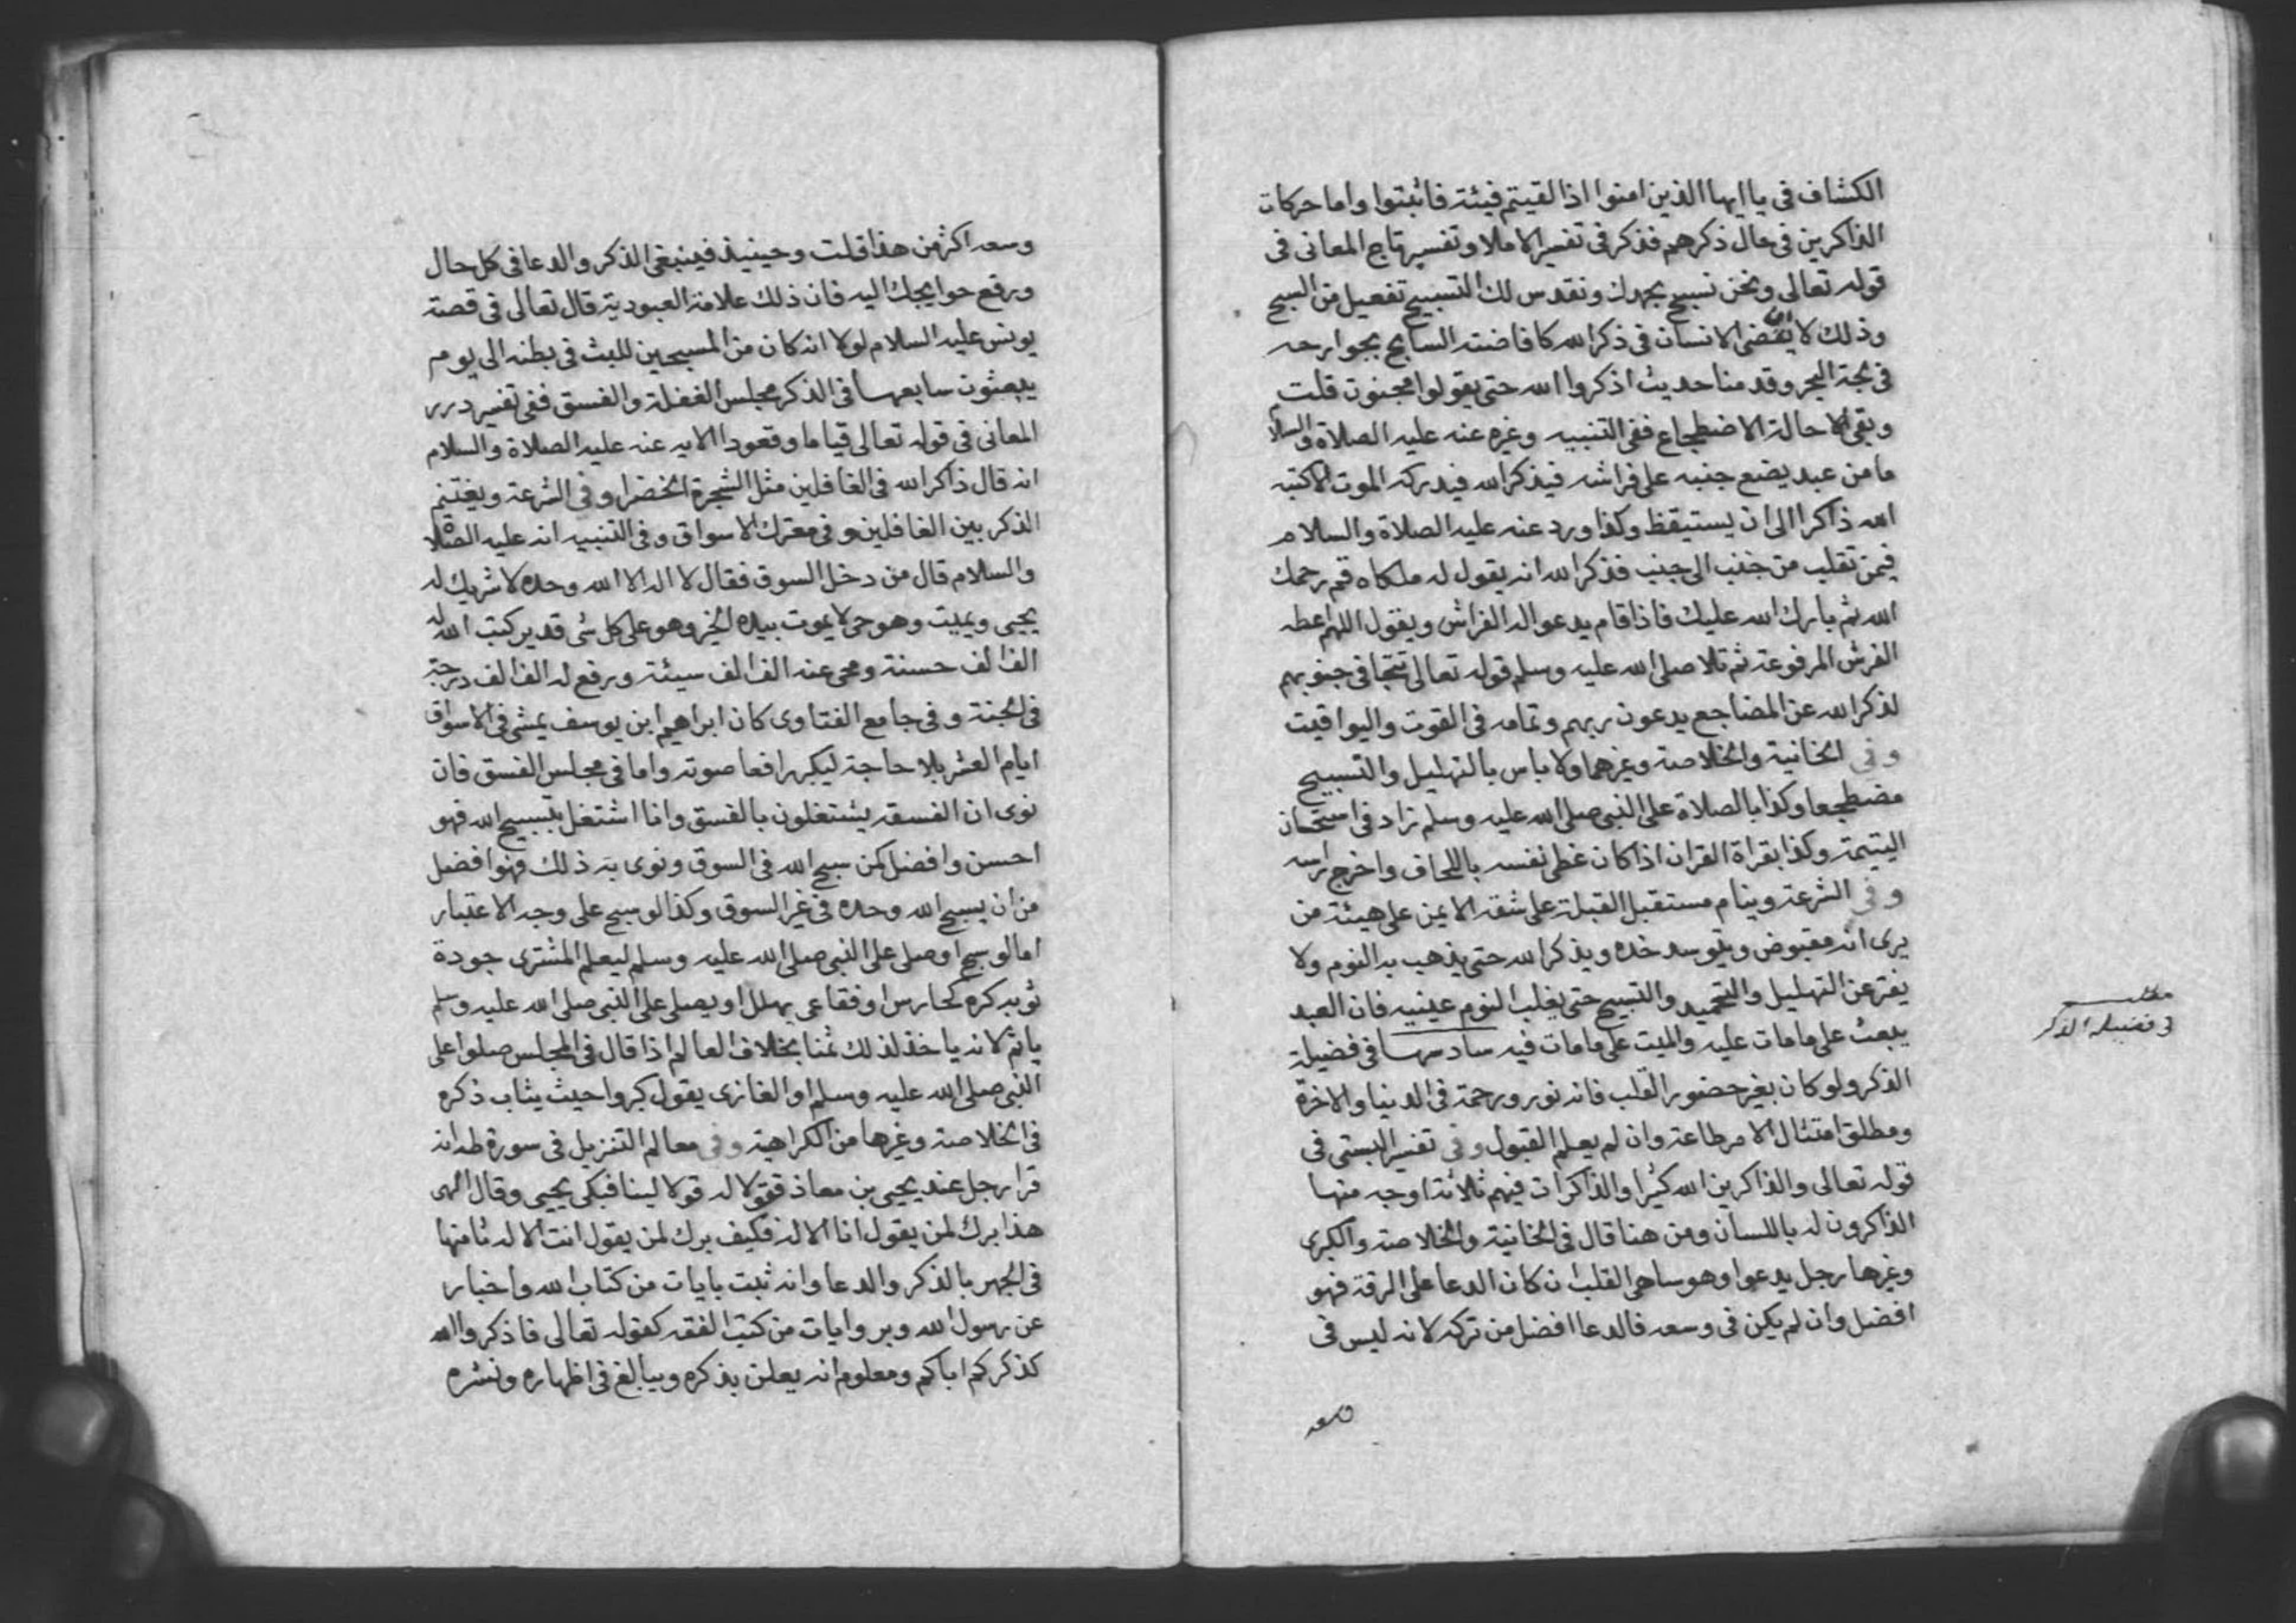 الكشاف فى يا ايها الذين امنوا اذا لقيتم فيئة فاثبتوا واما حركات
الذاكرين فى حال ذكرهم فذكر فى تفسير الاملا وتفسير تاج المعانى فى
قوله تعالى ونحن نسبح بحمدك ونقدس لك التسبيح تفعيل من السبح
وذلك لا يقضى الانسان فى ذكر الله كافاضته السابح بجوارحه
فى لجة البحر وقد مناحديث اذكروا الله حتى يقولوا مجنون قلت
وبقى الاحالة الاضطجاع ففى التنبيه وغيره عنه عليه الصلاة والسلا
ما من عبد يضع جنبه على فراشه فيذكر الله فيدركه الموت الاكتبه
الله ذاكرا الى ان يستيقظ وكذا ورد عنه عليه الصلاة والسلام
فيمن تقلب من جنب الى جنب فذكر الله انه يقول له ملكاه قم رحمك
الله ثم بارك الله عليك فاذا قام يدعواله الفراش ويقول اللهم اعطه
الفرش المرفوعة ثم تلا صلى الله عليه وسلم قوله تعالى تتجافى جنوبهم
لذكر الله عن المضاجع يدعون ربهم وتمامه فى القوت واليواقيت
وفى الخانية والخلاصة وغيرهما ولا باس بالتهليل والتسبيح
مضطجعا وكذا بالصلاة على النبى صلى الله عليه وسلم زاد فى استحسان
اليتيمة وكذا بقراة القران اذا كان غطى نفسه باللحاف واخرج راسه
وفى الشرعة وينام مستقبل القبلة على شقه الايمن على هيئة من
يرى انه مقبوض ويتوسد خده ويذكر الله حتى يذهب به النوم ولا
يفتر عن التهليل والتحميد والتسبيح حتى يغلب النوم عينيه فان العبد
يبعث على مامات عليه والميت على مامات فيه سادسها فى فضيلة
الذكر ولو كان بغير حضور القلب فانه نور ورحمة فى الدنيا والاخرة
ومطلق امتثال الامر طاعة وان لم يعلم القبول وفى تفسير البستى فى
قوله تعالى والذاكرين الله كثيرا والذاكرات فيهم ثلاثة اوجه منها
الذاكرون له باللسان ومن هنا قال فى الخانية والخلاصة والكبرى
وغيرها رجل يدعوا وهو ساهى القلب ان كان الدعا على الرقة فهو
افضل وان لم يكن فى وسعه فالدعا افضل من تركه لانه ليس فى
وسعه
مطلب
فى فضيلة الذكر
وسعه اكثر من هذا قلت وحينيذ فينبغى الذكر والدعا فى كل حال
ورفع حوايجك اليه فان ذلك علامة العبودية قال تعالى فى قصة
يونس عليه السلام لولا انه كان من المسبحين للبث فى بطنه الى يوم
يبعثون سابعها فى الذكر مجلس الغفلة والفسق ففى تفسير درر
المعانى فى قوله تعالى قياما وقعودا الايه عنه عليه الصلاة والسلام
انه قال ذاكر الله فى الغافلين مثل الشجرة الخضرا وفى الشرعة ويغتنم
الذكر بين الغافلين وفى معترك الاسواق وفى التنبيه انه عليه الصلاة
والسلام قال من دخل السوق فقال لا اله الا الله وحده لا شريك له
يحيى ويميت وهو حى لا يموت بيده الخير وهو على كل شى قدير كتب الله له
الف الف حسنة ومحى عنه الف الف سيئة ورفع له الف الف درجة
فى الجنة وفى جامع الفتاوى كان ابراهيم ابن يوسف يمشى فى الاسواق
ايام العشر بلا حاجة ليكبر رافعا صوته واما فى مجلس الفسق فان
نوى ان الفسقه يشتغلون بالفسق وانا اشتغل بتسبيح الله فهو
احسن وافضل كمن سبح الله فى السوق ونوى به ذلك فهوا فضل
من ان يسبح الله وحده فى غير السوق وكذا لو سبح على وجه الاعتبار
اما لو سبح او صلى على النبى صلى الله عليه وسلم ليعلم المشترى جودة
ثوبه كره كحارس او فقاعى يهلل او يصلى على النبى صلى الله عليه وسلم
ياثم لانه ياخذ لذلك ثمنا بخلاف العالم اذا قال فى المجلس صلوا على
النبى صلى الله عليه وسلم او الغازى يقول كبروا حيث يثاب ذكره
فى الخلاصة وغيرها من الكراهية وفى معالم التنزيل فى سورة طه انه
قرا رجل عند يحيى بن معاذ فقولا له قولا لينا فبكى يحيى وقال الهى
هذا برك لمن يقول انا الاله فكيف برك لمن يقول انت الاله ثامنها
فى الجهر بالذكر والدعا وانه ثبت بايات من كتاب الله واخبار
عن رسول الله وبروايات من كتب الفقه كقوله تعالى فاذكروا الله
كذكركم اباكم ومعلوم انه يعلن بذكره ويبالغ فى اظهاره ونشره